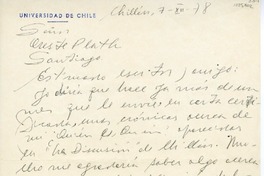 UNIVERSIDAD DE CHILE
Chillán, 7-XI-78
Señor
Oreste Plath
Santiago
Estimado escritor y amigo:
Ya diría que hace ya más de un
mes que le envié en carta certi
ficada unas crónicas acerca de
su
en "La Discusión" de Chillán. Mu
cho me agradaría saber algo acerca